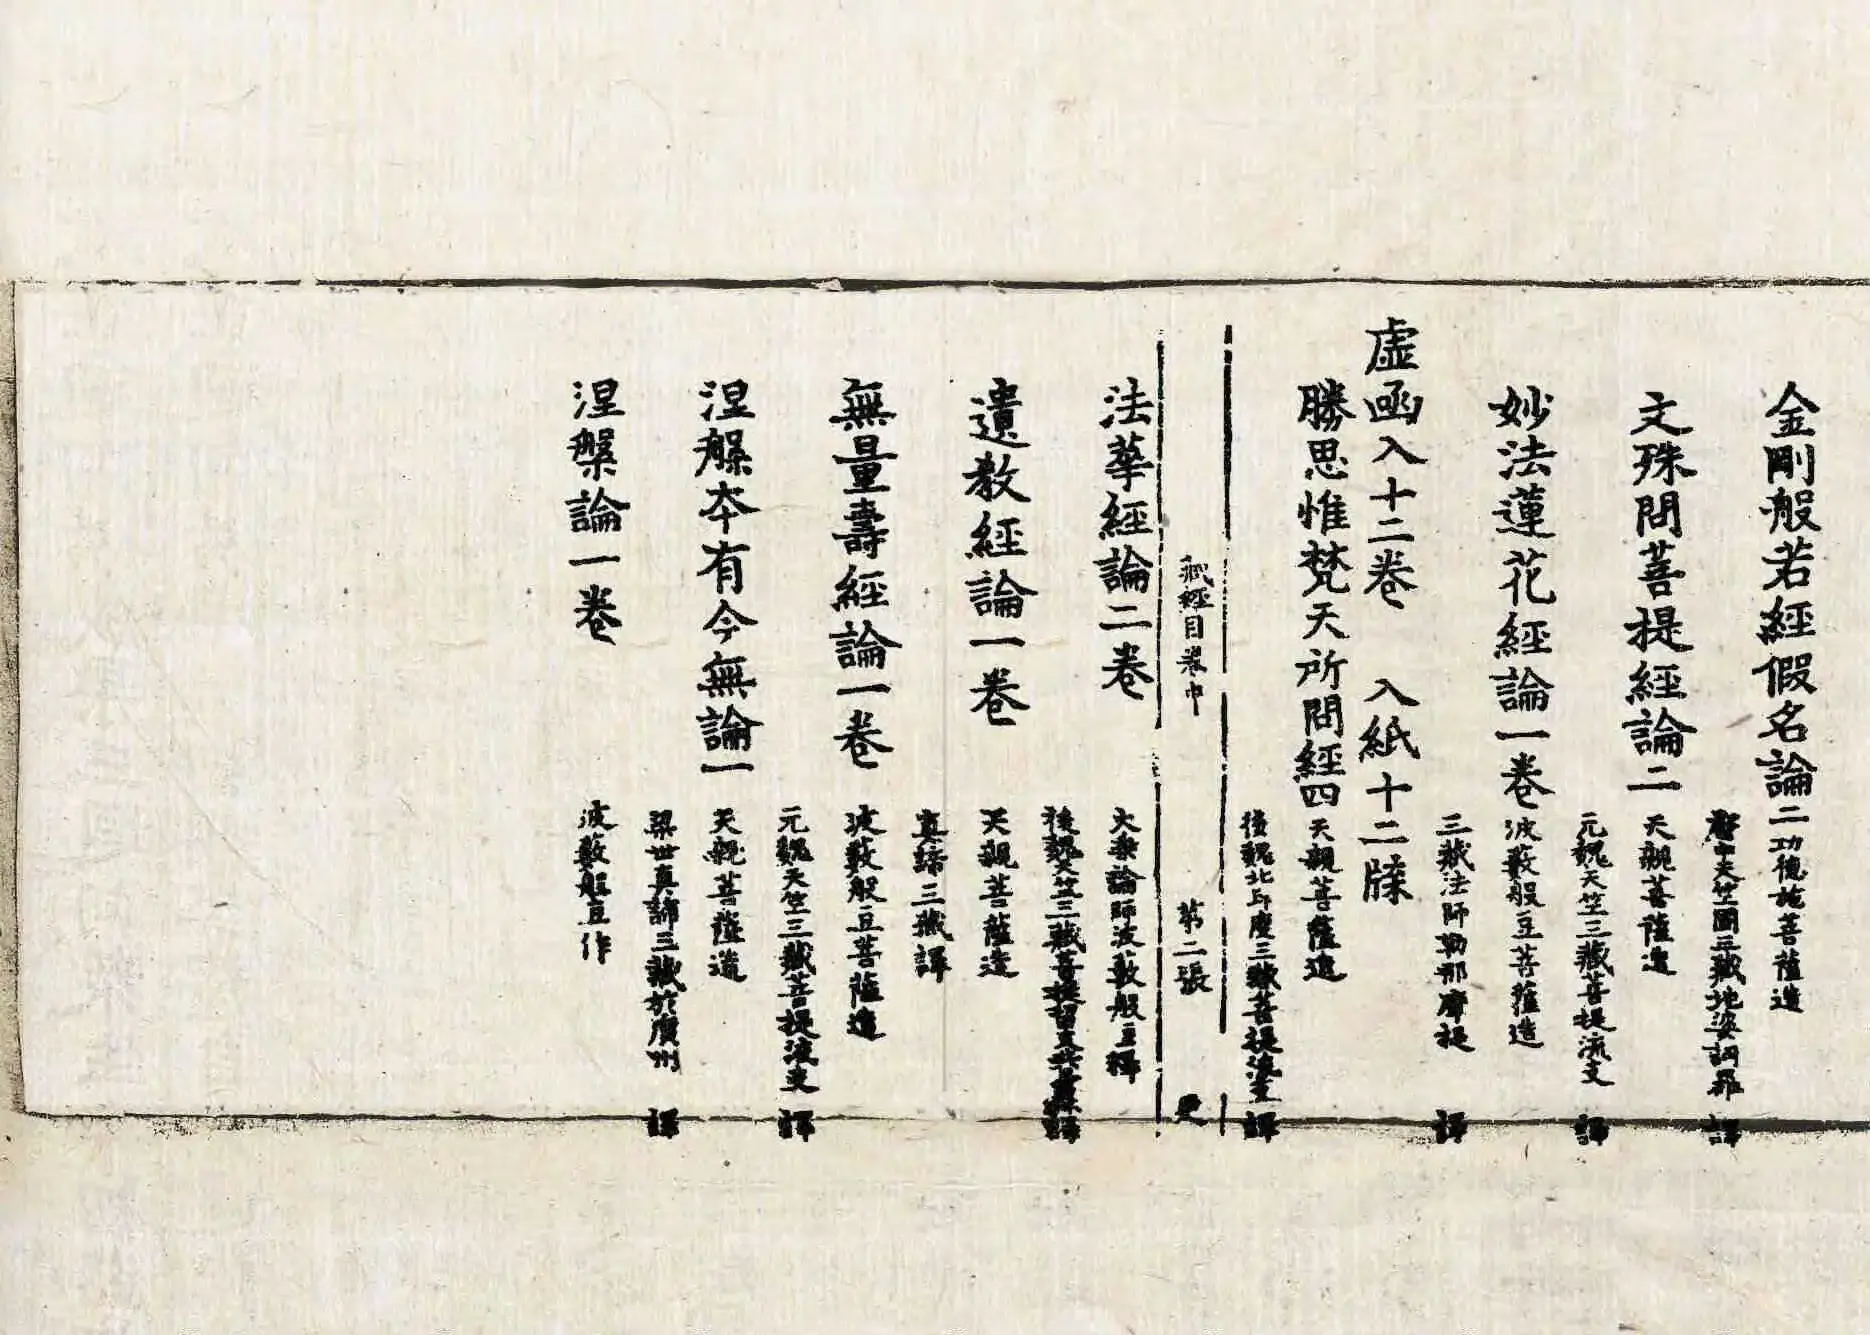 金剛般若經假名論二 功德施菩薩造
唐中天竺國三藏地婆訶羅 譯
文殊問菩提經論二 天親菩薩造
元魏天竺三藏菩提流支 譯
妙法蓮花經論一卷 波藪般豆菩薩造
三藏法師勒那摩提 譯
虛函入十二卷 入紙十二牒
勝思惟梵天所問經四 天親菩薩造
後魏北印度三藏菩提流支 譯
藏經目卷中 第二張 更
法華經論二卷 大乘論師波藪般豆釋
後魏天竺三藏菩提留支共曇霖譯
遺教經論一卷 天親菩薩造
真諦三藏譯
無量壽經論一卷 波藪般豆菩薩造
元魏天竺三藏菩提流支 譯
涅槃本有今無論一 天親菩薩造
梁世真諦三藏於廣州 譯
涅槃論一卷 波藪般豆作